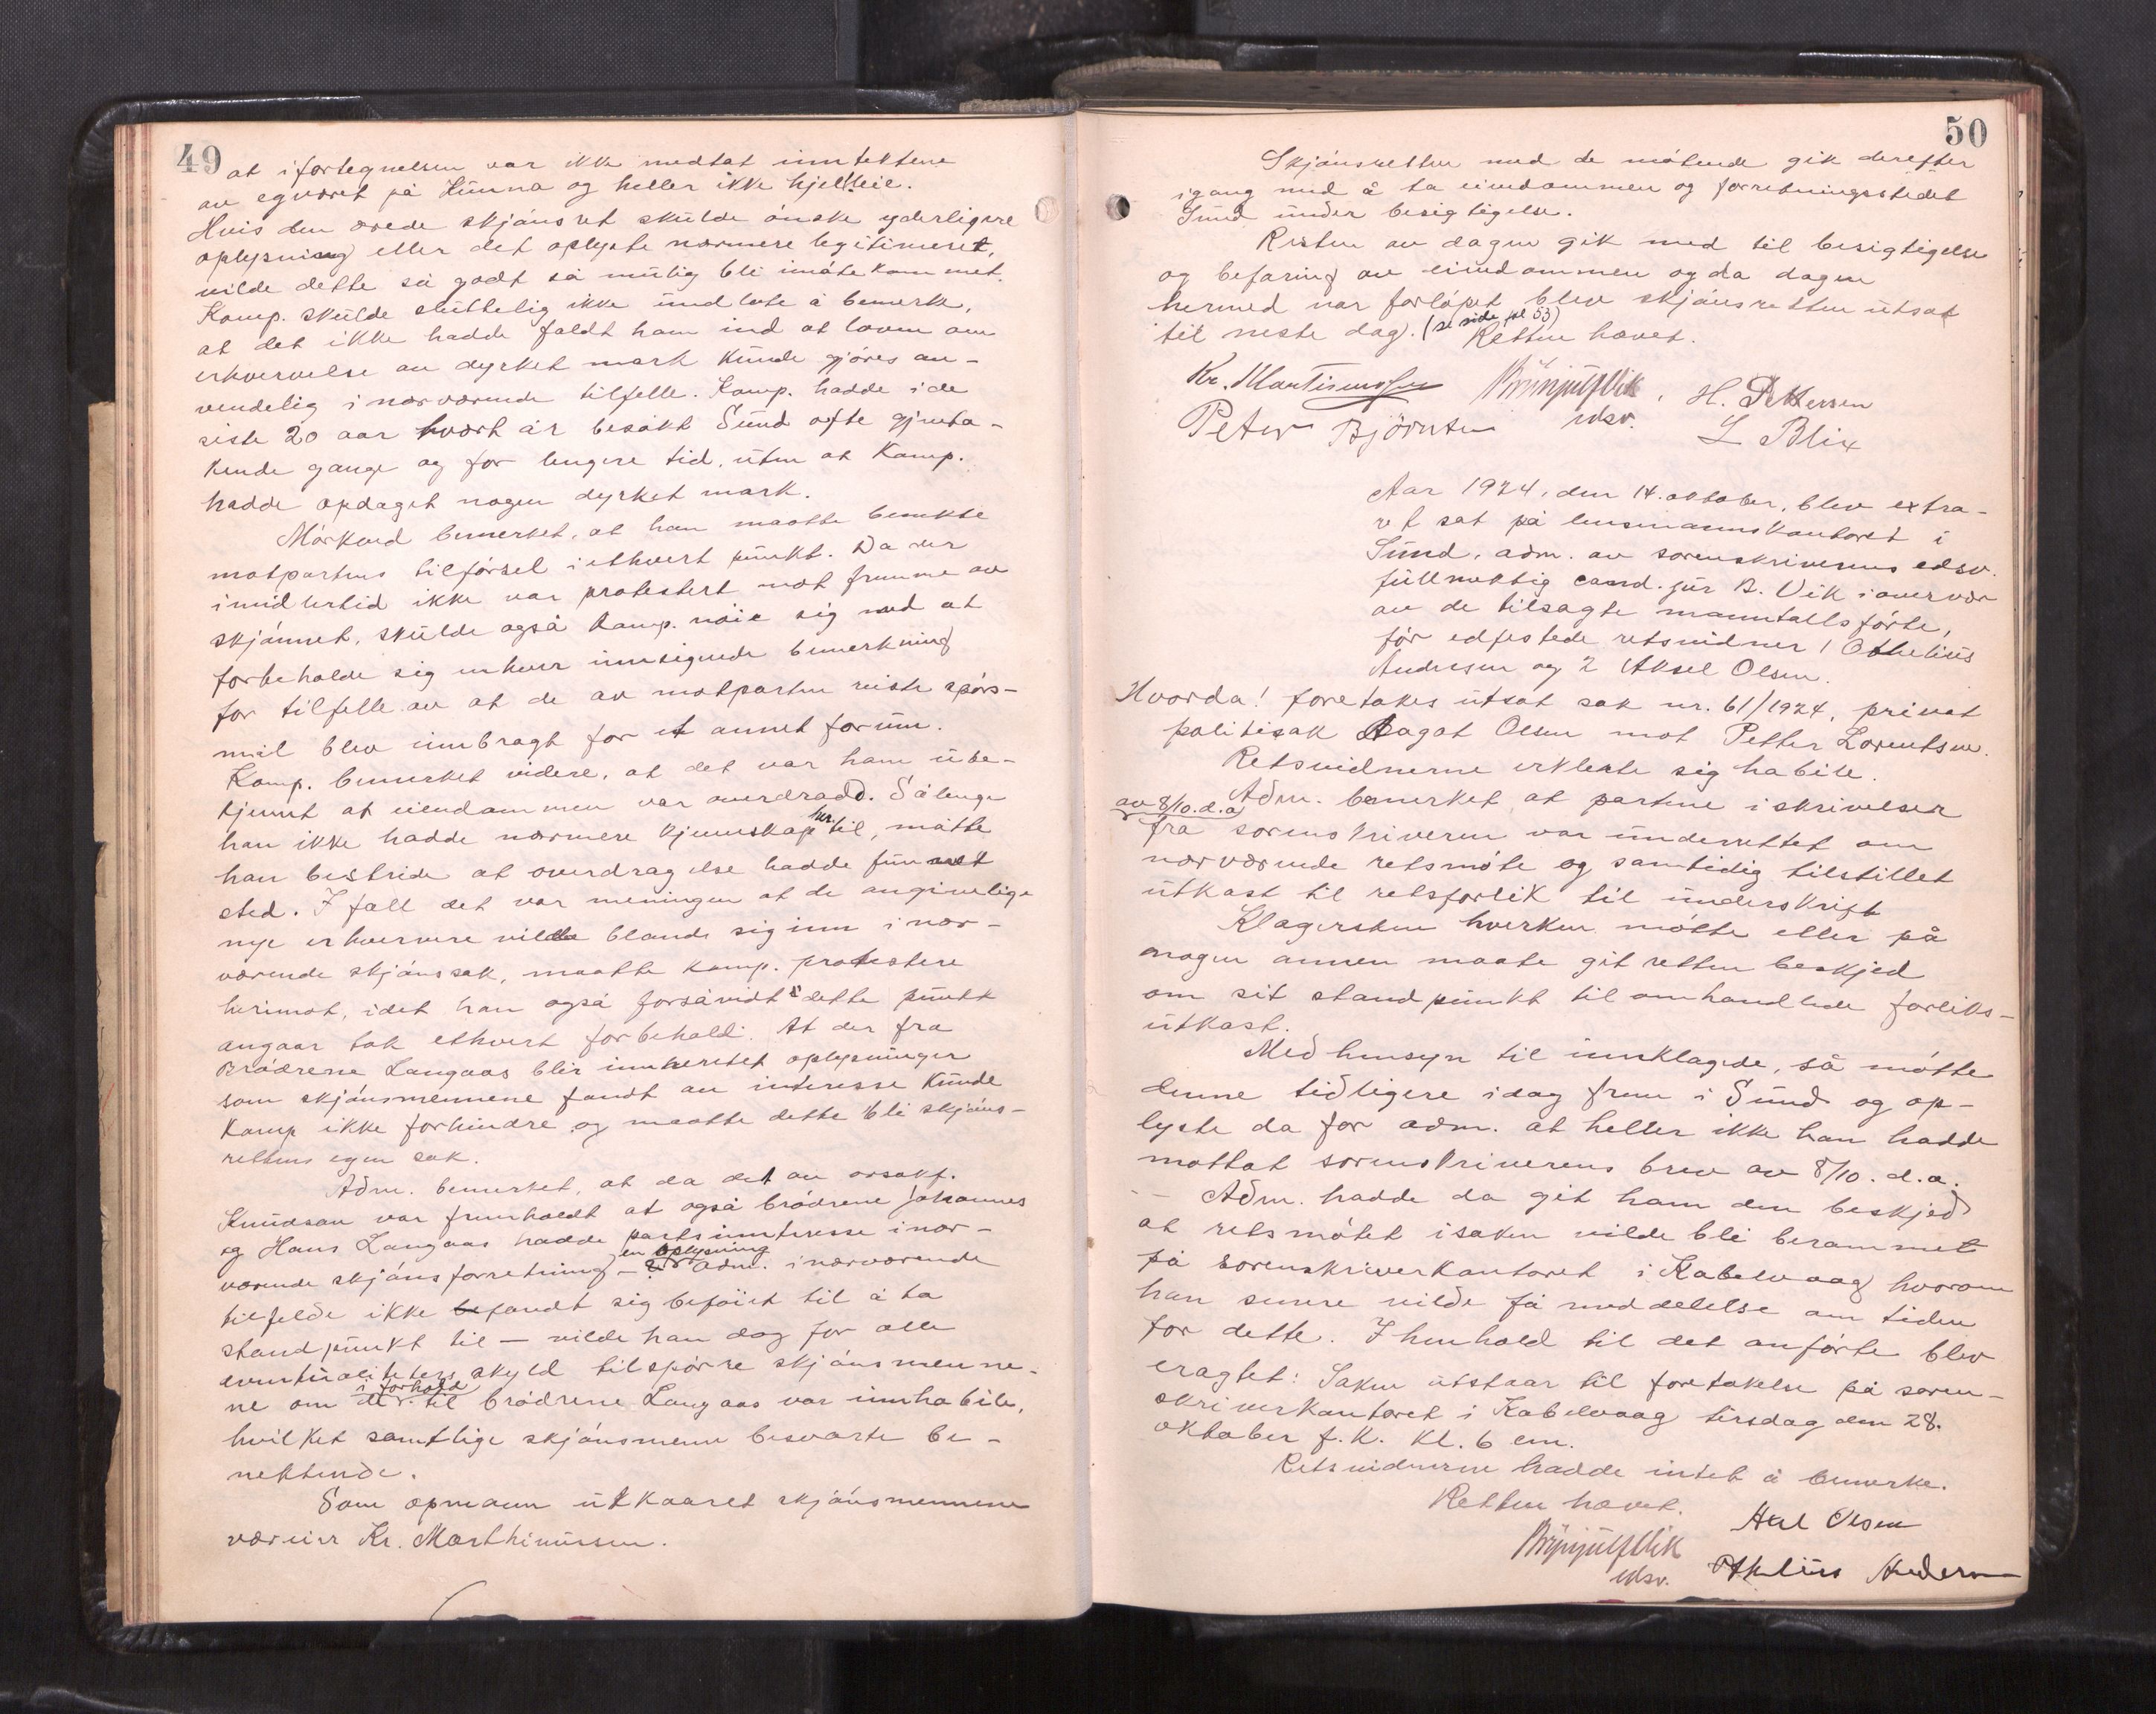 49
at i fortegnelsen var ikke medtat inntektene
av egværet på Hunna og heller ikke hjelleie.
Hvis den ærede skjønsret skulde ønske yderligere
oplysning eller det oplyste nærmere legitimeret,
vilde dette så godt så mulig bli imøtekommet.
Komp. skulde sluttelig ikke undlate å bemerke,
at det ikke hadde faldt ham ind at loven om
erhvervelse av dyrket mark kunde gjøres an-
vendelig i nærværende tilfelle. Komp. hadde i de
siste 20 aar hvært år besøkt Sund ofte gjenta-
kende gange og for lengere tid, uten at Komp.
hadde opdaget nogen dyrket mark.
Mørkved bemerket, at han maatte benekte
motpartens tilførsel i ethvert punkt. Da der
imidlertid ikke var protestert mot fremme av
skjønnet, skulde også Komp. nøie sig med at
forbeholde sig enhver innsigende bemerkning
for tilfelle av at de av motparten reiste spørs-
mål blev innbragt for et annet forum.
Komp. bemerket videre, at det var ham ube-
kjennt at eiendommen var overdradd. Sålenge
han ikke hadde nærmere kjennskap her til, måtte
han bestride at overdragelse hadde funnet
sted. I fall det var meningen at de angivelige
nye erhververe vilde blande sig inn i nær-
værende skjønssak, maatte komp. protestere
herimot, idet han også forsåvidt dette punkt
angaar tok ethvert forbehold. At der fra
Brødrene Langaas blir innhentet oplysninger
som skjønsmennene fandt av interesse kunde
Komp ikke forhindre og maatte dette bli skjøns-
rettens egen sak.
Adm. bemerket, at da det av orsakf.
Knudsøn var fremholdt at også brødrene Johannes
og Hans Langaas hadde partsinnteresse i nær-
værende skjønsforretning – en oplysning adm. i nærværende
tilfelde ikke befandt sig beføiet til å ta
standpunkt til – vilde han dog for alle
eventualiteters skyld tilspørre skjønsmenne-
ne om de i forhold til brødrene Langaas var innhabile,
hvilket samtlige skjønsmenn besvarte be-
nektende.
Som opmann utkaaret skjønsmennene
væreier Kr. Marthinussen.
50
Skjønsretten med de møtende gik derefter
igang med å ta eiendommen og forretningsstedet
Sund under besigtigelse.
Resten av dagen gik med til besigtigelse
og befaring av eiendommen og da dagen
hermed var forløpet blev skjønsretten utsat
til neste dag. (se side pl 53) Retten hævet.
Kr. Martinussen Brünjulf Vik edsv. H. Pettersen
Peter Björnsen L Blix
Aar 1924, den 14. oktober, blev extra-
ret sat på lensmannskontoret i
Sund, adm. av sorenskriverens edsv.
fullmektig cand. jur B. Vik i overvær
av de tilsagte manntallsførte,
før edfestede retsvidner 1 Othelius
Andersen og 2 Aksel Olsen.
Hvorda! foretokes utsat sak nr. 61/1924, privat
politisak Aagot Olsen mot Petter Lorentsen.
Retsvidnerne erklerte sig habile.
Adm. bemerket at partene i skrivelser
av 8/10. d.a. fra sorenskriveren var underrettet om
nærværende retsmøte og samtidig tilstillet
utkast til retsforlik til underskrift
Klagersken hverken møtte eller på
nogen annen maate git retten beskjed
om sit standpunkt til omhandlede forliks-
utkast.
Med hensyn til innklagede, så møtte
denne tidligere idag frem i Sund og op-
lyste da for adm. at heller ikke han hadde
mottat sorenskriverens brev av 8/10. d.a.
– Adm. hadde da git ham den beskjed
at retsmøtet i saken vilde bli berammet
på sorenskriverkontoret i Kabelvaag hvorom
han senere vilde få meddelelse om tiden
for dette. I henhold til det anførte blev
eragtet: Saken utstaar til foretakelse på soren-
skriverkontoret i Kabelvaag tirsdag den 28.
oktober f.k. kl. 6 em.
Retsvidnerne hadde intet å bemerke.
Retten hævet.
Brynjulf Vik edsv. Axel Olsen
Othelius Andersen